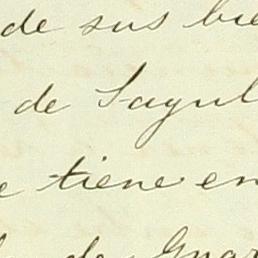 de sus bie
de Sayul
e tiene en
de Guar